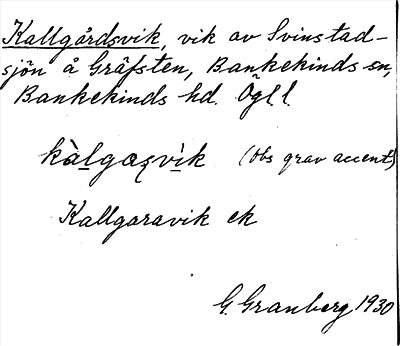 Kallgårdsvik, vik av Svinstad-
sjön å Gräfsten, Bankekinds sn,
Bankekinds hd. Ögl.
kàlgaʂvìk (Obs grav accent)
Kallgaravik ek
G. Granberg 1930